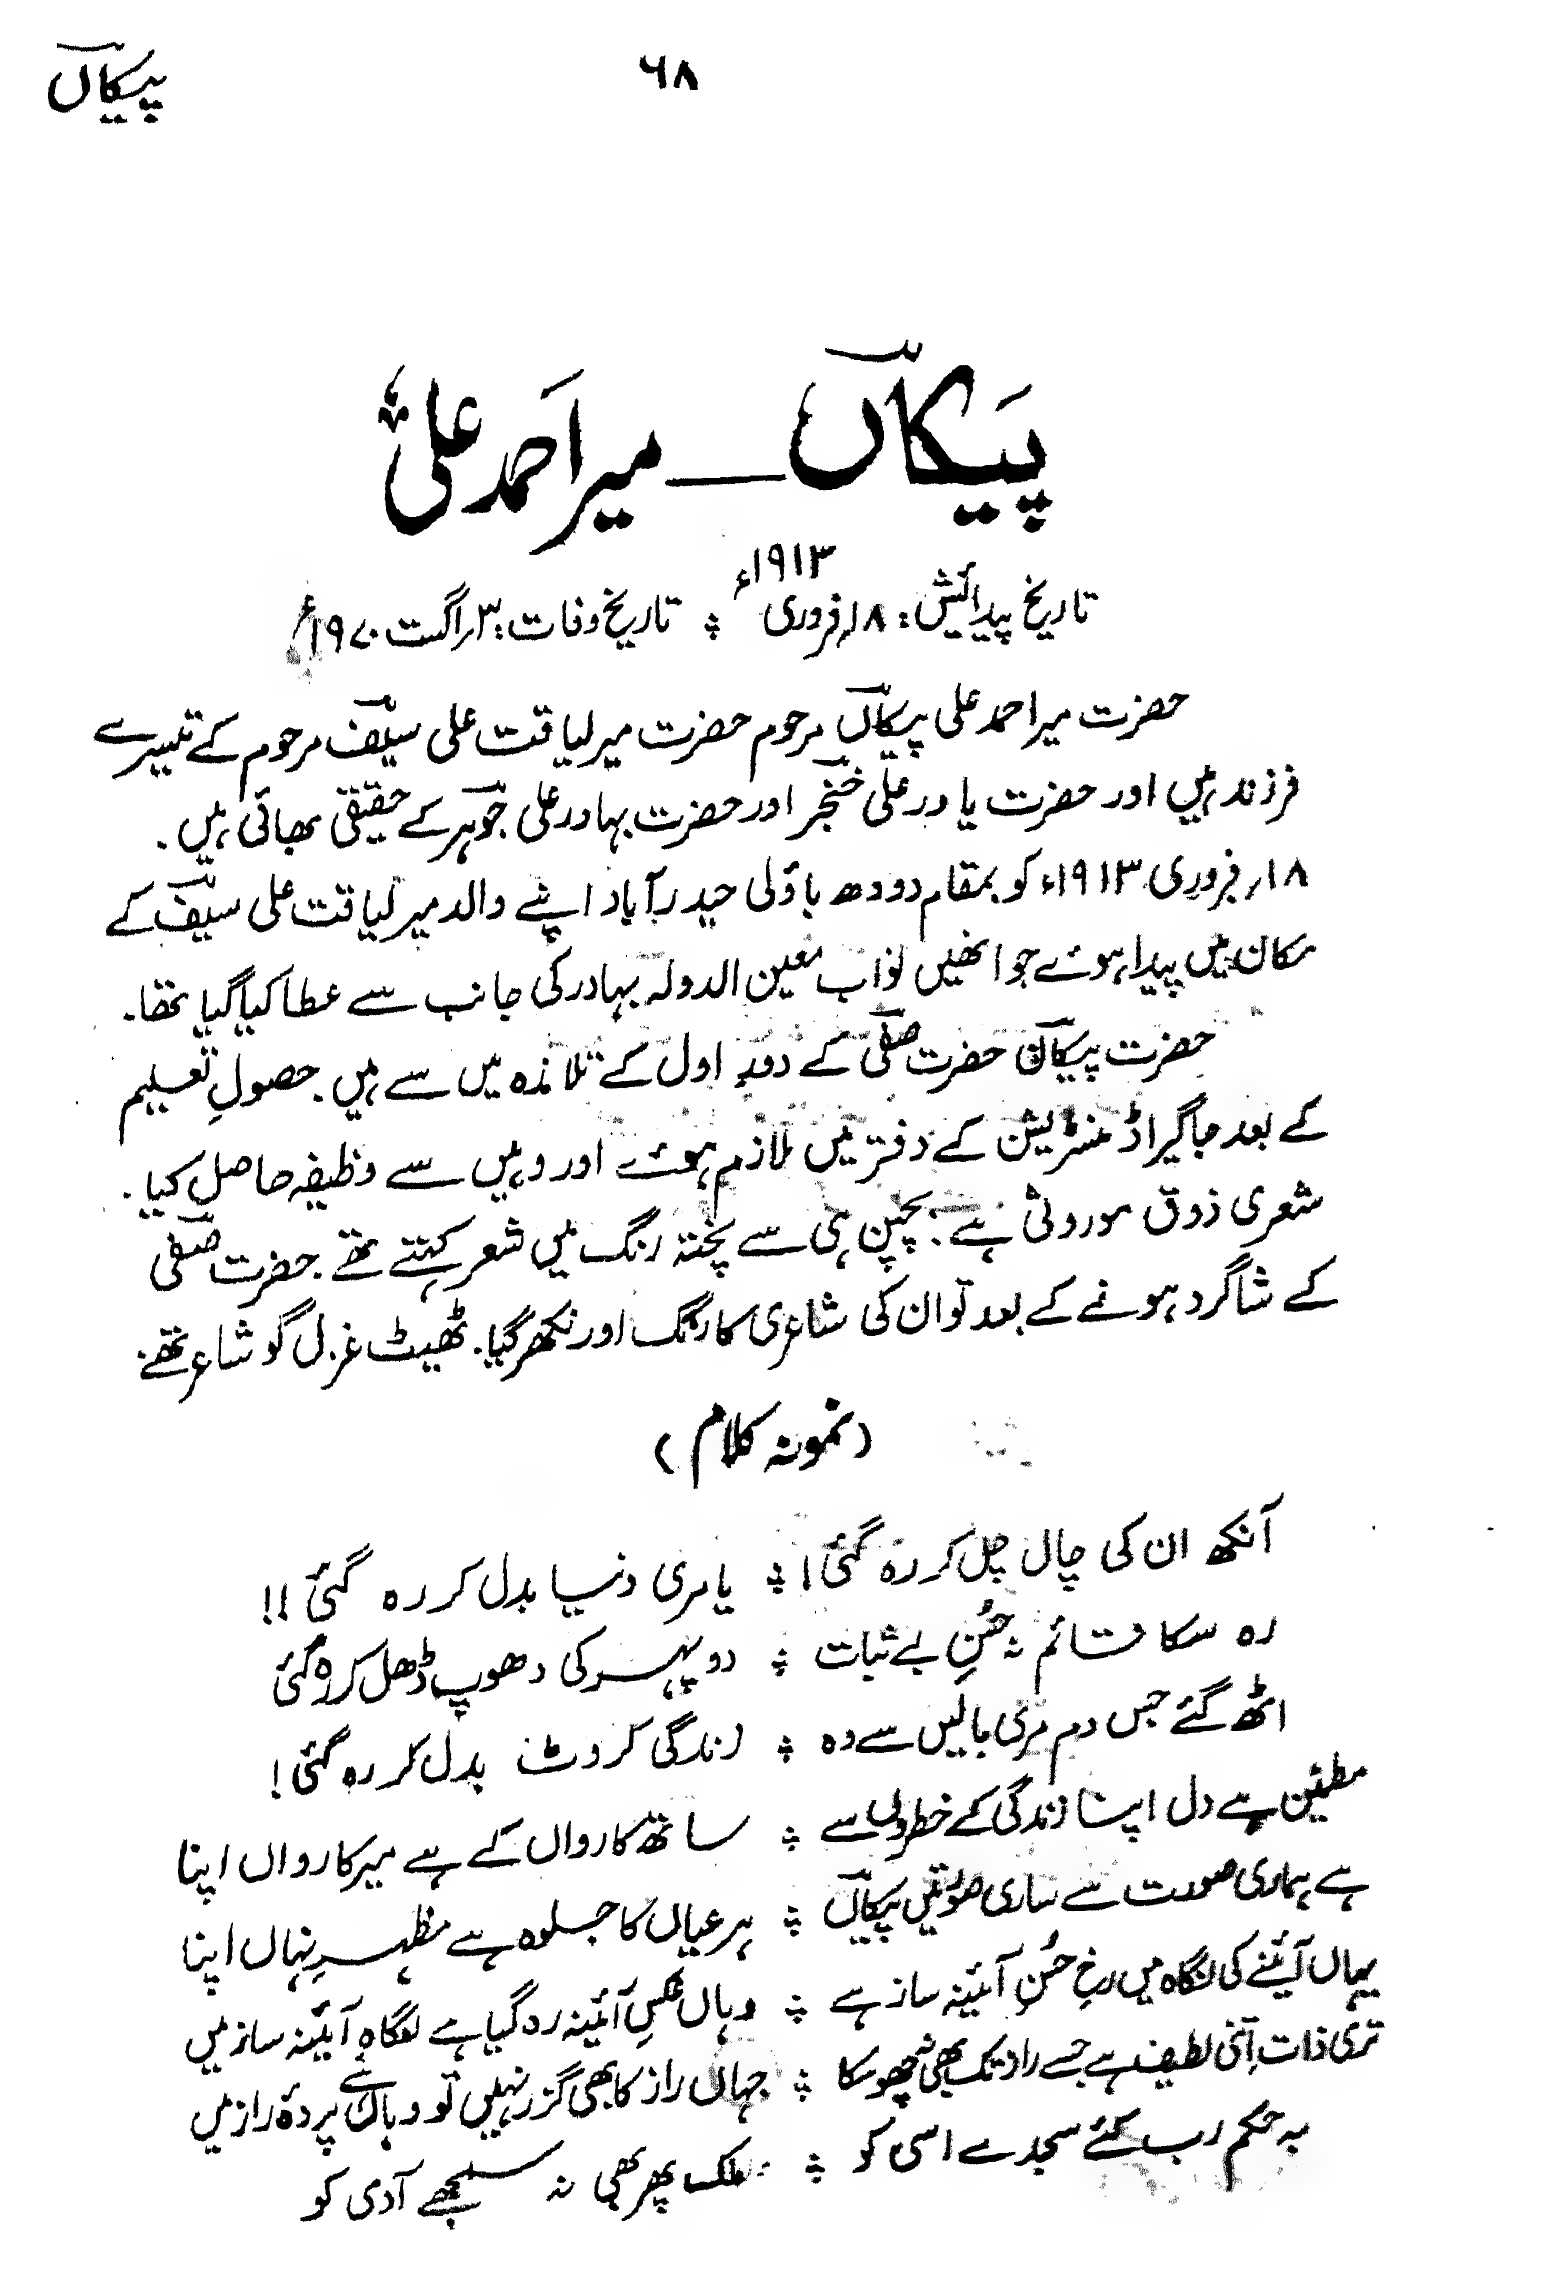 پیکاںؔ
۶۸
پیکاںؔ — میر احمد علیؒ
تاریخ پیدائش: ۱۸؍فروری ۱۹۱۳ء ؞ تاریخ وفات: ۳؍اگست ۱۹۷۰ء
حضرت میر احمد علی پیکاںؔ مرحوم حضرت میر لیاقت علی سیفؔ مرحوم کے تیسرے
فرزند ہیں اور حضرت یاور علی خنجرؔ اور حضرت بہادر علی جوہرؔ کے حقیقی بھائی ہیں۔
۱۸؍فروری ۱۹۱۳ء کو بمقام دودھ باؤلی حیدرآباد اپنے والد میر لیاقت علی سیفؔ کے
مکان میں پیدا ہوئے جو انھیں نواب معین الدولہ بہادر کی جانب سے عطا کیا گیا تھا۔
حضرت پیکاںؔ حضرت صفیؔ کے دور اول کے تلامذہ میں سے ہیں۔ حصولِ تعلیم
کے بعد جاگیر اڈمنسٹریشن کے دفتر میں ملازم ہوئے اور وہیں سے وظیفہ حاصل کیا۔
شعری ذوق موروثی ہے۔ بچپن ہی سے پختہ رنگ میں شعر کہتے تھے۔ حضرت صفیؔ
کے شاگرد ہونے کے بعد تو ان کی شاعری کا رنگ اور نکھر گیا۔ ٹھیٹ غزل گو شاعر تھے۔
(نمونہ کلام)
آنکھ ان کی چال چل کر رہ گئی! ؞ یا مری دنیا بدل کر رہ گئی!!
رہ سکا قائم نہ حُسنِ بے ثبات ؞ دوپہر کی دھوپ ڈھل کر رہ گئی
اٹھ گئے جس دم مری بالیں سے وہ ؞ زندگی کروٹ بدل کر رہ گئی!
مطمئن ہے دل اپنا زندگی کے خطروں سے ؞ ساتھ کارواں کے ہے میر کارواں اپنا
ہے ہماری صورت سے ساری صورتیں پیکاںؔ ؞ ہر عیاں کا جلوہ ہے مظہرِ نہاں اپنا
یہاں آئینے کی نگاہ میں رخِ حُسنِ آئینہ ساز ہے ؞ وہاں عکسِ آئینہ رہ گیا ہے نگاہِ آئینہ ساز میں
تری ذات اتنی لطیف ہے جسے راز تک بھی نہ چھو سکا ؞ جہاں راز کا بھی گزر نہیں تو وہاں ہے پردۂ راز میں
بہ حکم رب کئے سجدے اسی کو ؞ ملک پھر بھی نہ سمجھے آدمی کو